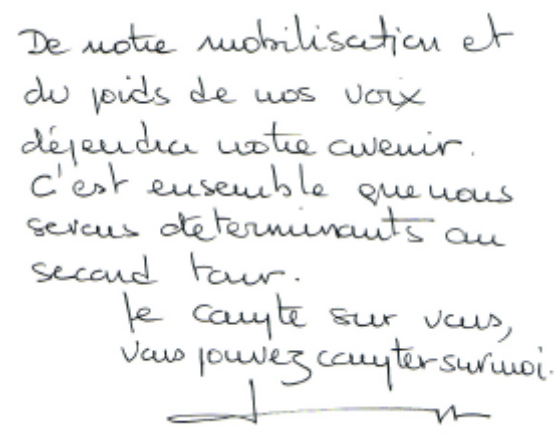 De notre mobilisation et
du poids de nos voix
dépendra notre avenir.
C'est ensemble que nous
serons determinants au
second tour.
Je compte sur vous,
vous pouvez compter sur moi.